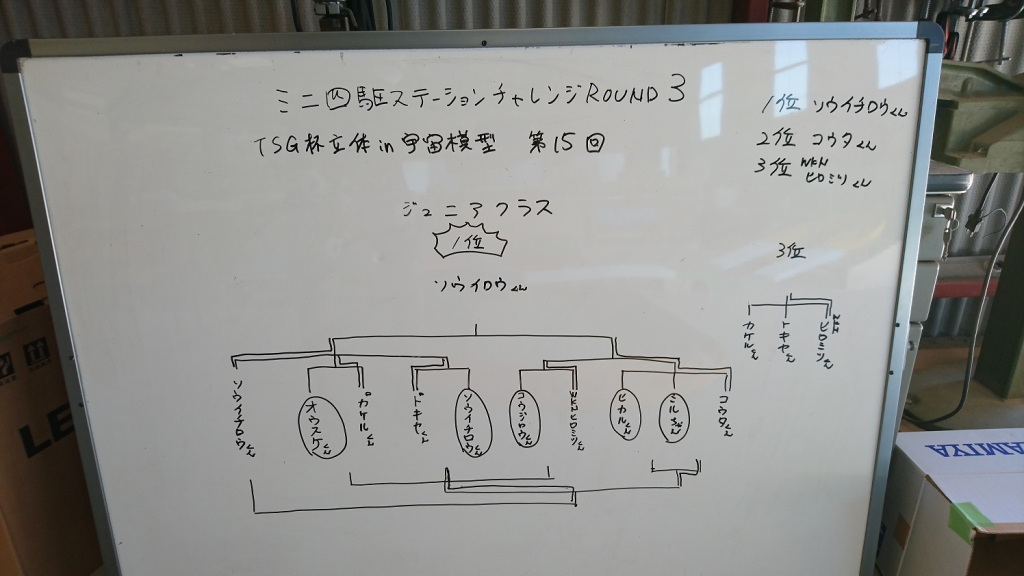 ミニ四駆ステーションチャレンジROUND 3
TSG杯立体in宇宙模型 第15回
1位 ソウイチロウくん
2位 コウタくん
3位 WKN ヒロミツくん
ジュニアクラス
1位
ソウイロウくん
3位
カケルくん
トキヤくん
ヒロミツくん
ソウイチロウくん
オウスケくん
カケルくん
トキヤくん
ソウイチロウくん
コウジロウくん
WKNヒロミツくん
ヒカルくん
コウタくん
TAMIYA